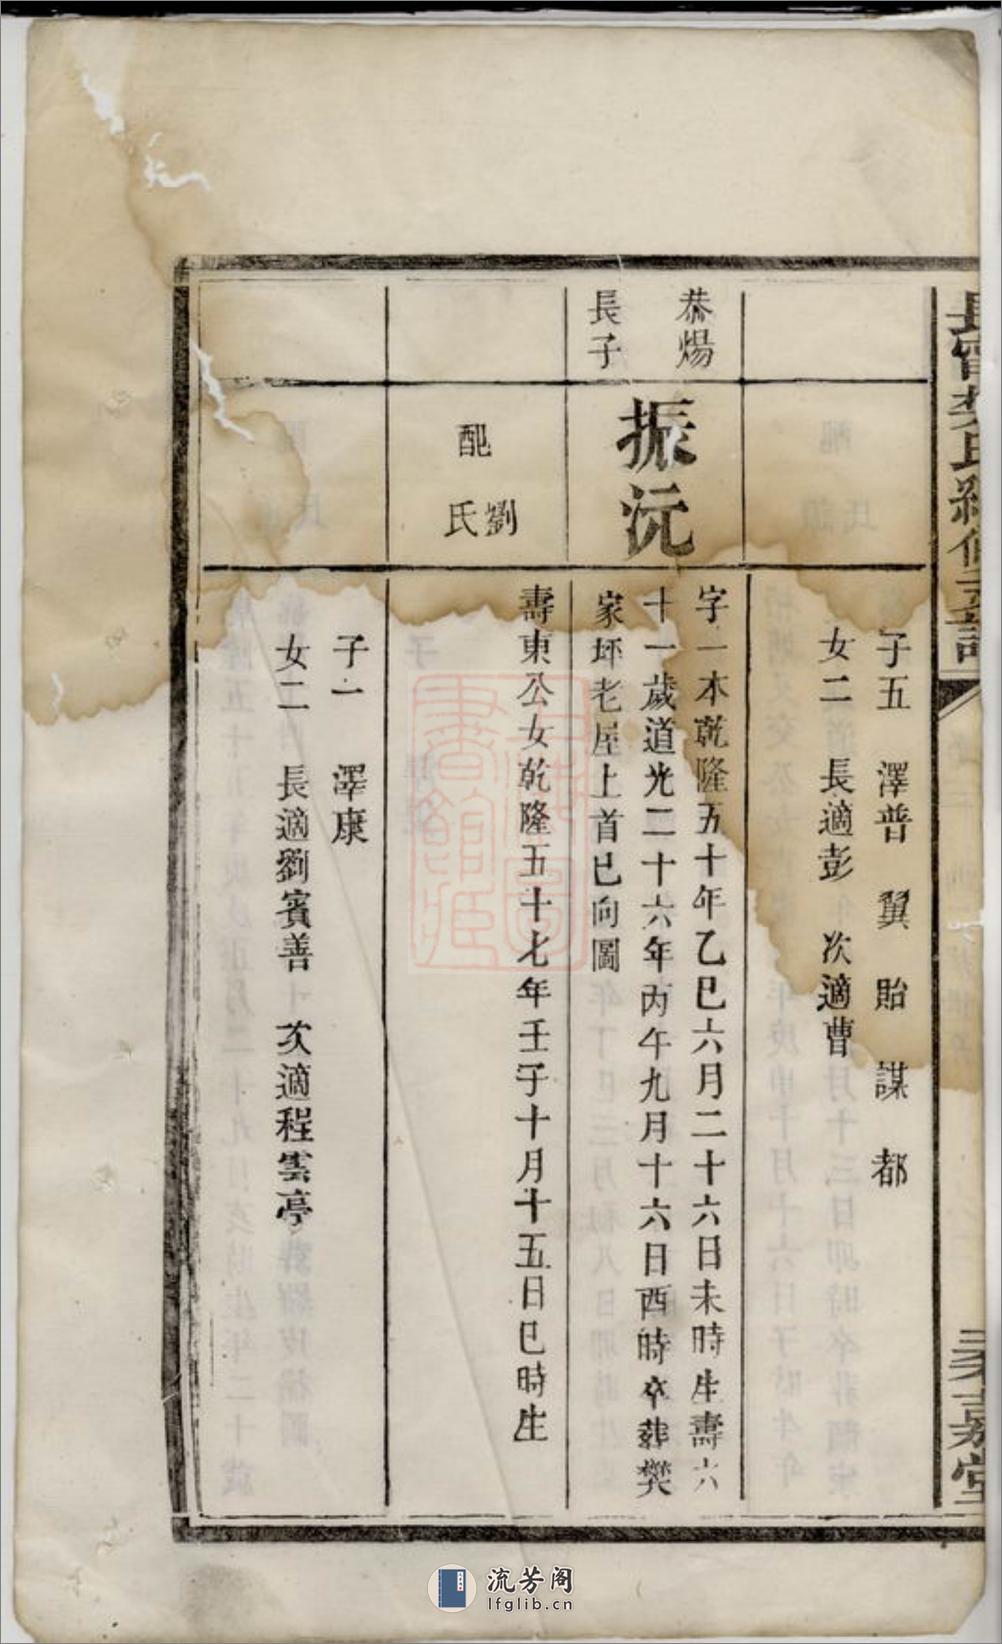 長甯樊氏續修支譜
嘉堂
子五 澤普 翼 貽 謀 都
女二 長適彭 次適曹
恭煬
長子
振沅
字一本乾隆五十年乙巳六月二十六日未時生壽六
十一歲道光二十六年丙午九月十六日酉時卒葬樊
家坪老屋上首巳向圖
配劉氏
壽東公女乾隆五十七年壬子十月十五日巳時生
子一 澤康
女二 長適劉賓善 次適程雲亭
上海圖書館藏
流芳阁
lfglib.cn